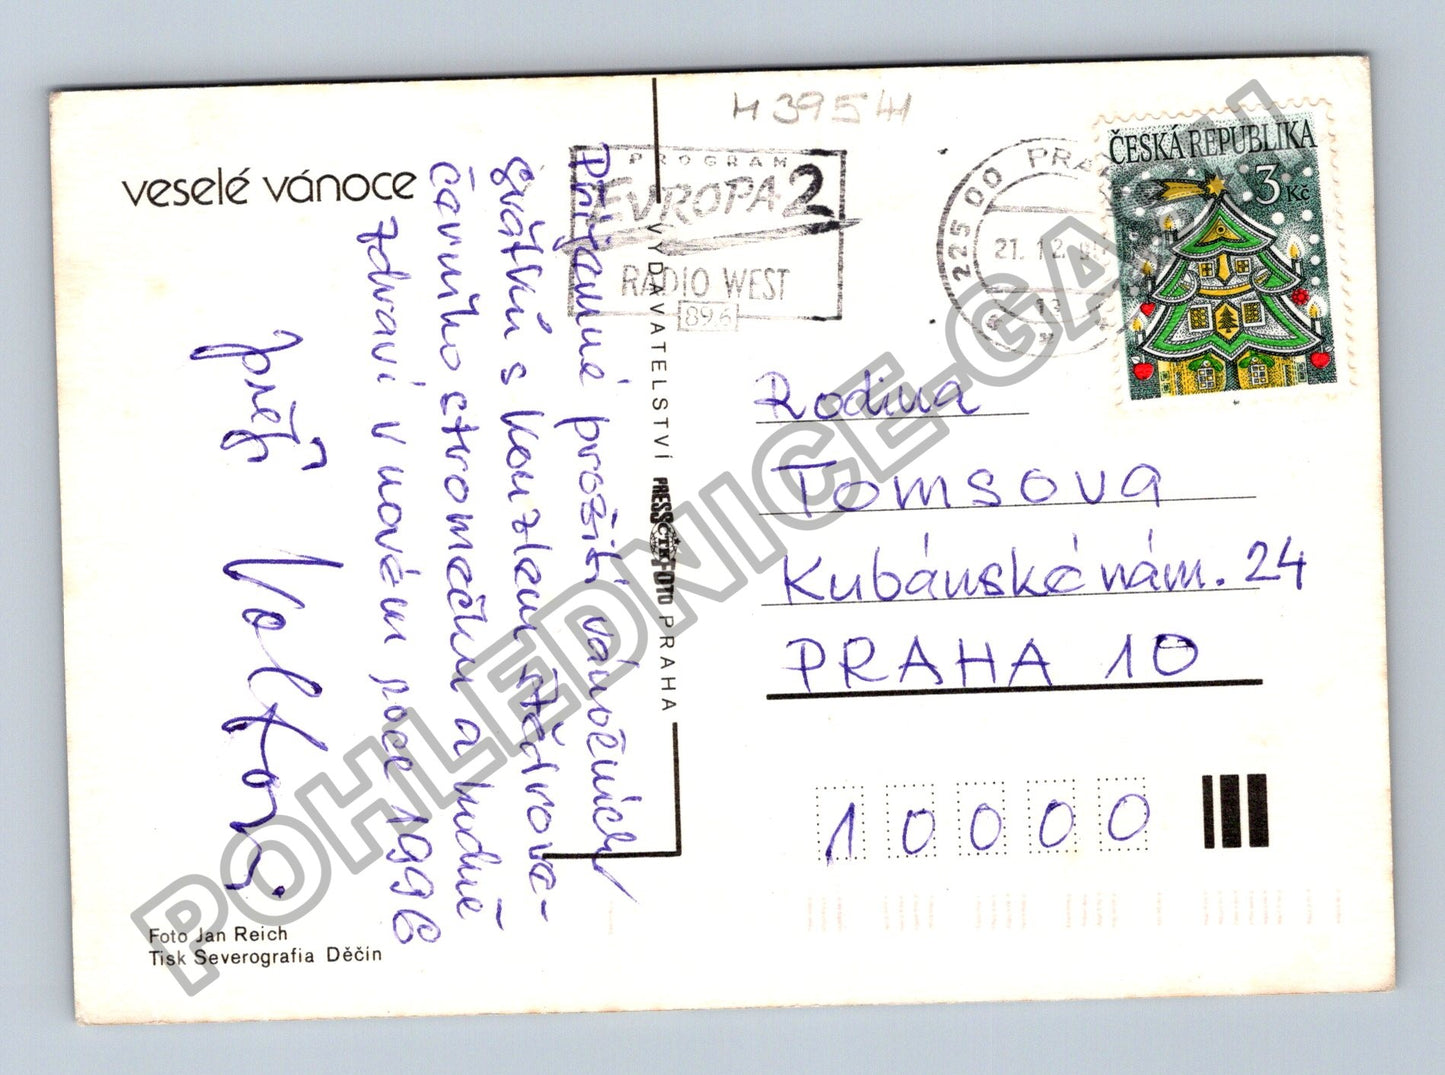 H 39541
veselé vánoce
PROGRAM
EVROPA 2
RADIO WEST
89.6
225 00 PRAHA
21. 12.
13
ČESKÁ REPUBLIKA
3
Kč
Příjemné prožití vánočních
svátků s kouzlem štědrove-
černího stromečku a hodně
zdraví v novém roce 1996
přejí
VYDAVATELSTVÍ PRESSFOTO PRAHA
ČTK
Rodina
Tomsova
Kubánské nám. 24
PRAHA 10
10000
Foto Jan Reich
Tisk Severografia Děčín
POHLEDNICE-GALI